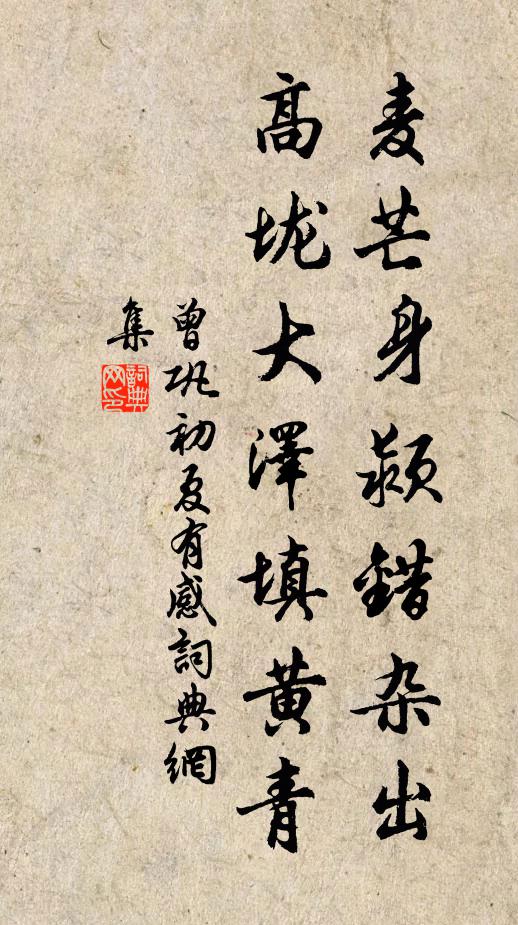 麦芒身颖錯杂出
高垅大澤填黄青
曾巩初夏有感詞典網
集
詞典
网印